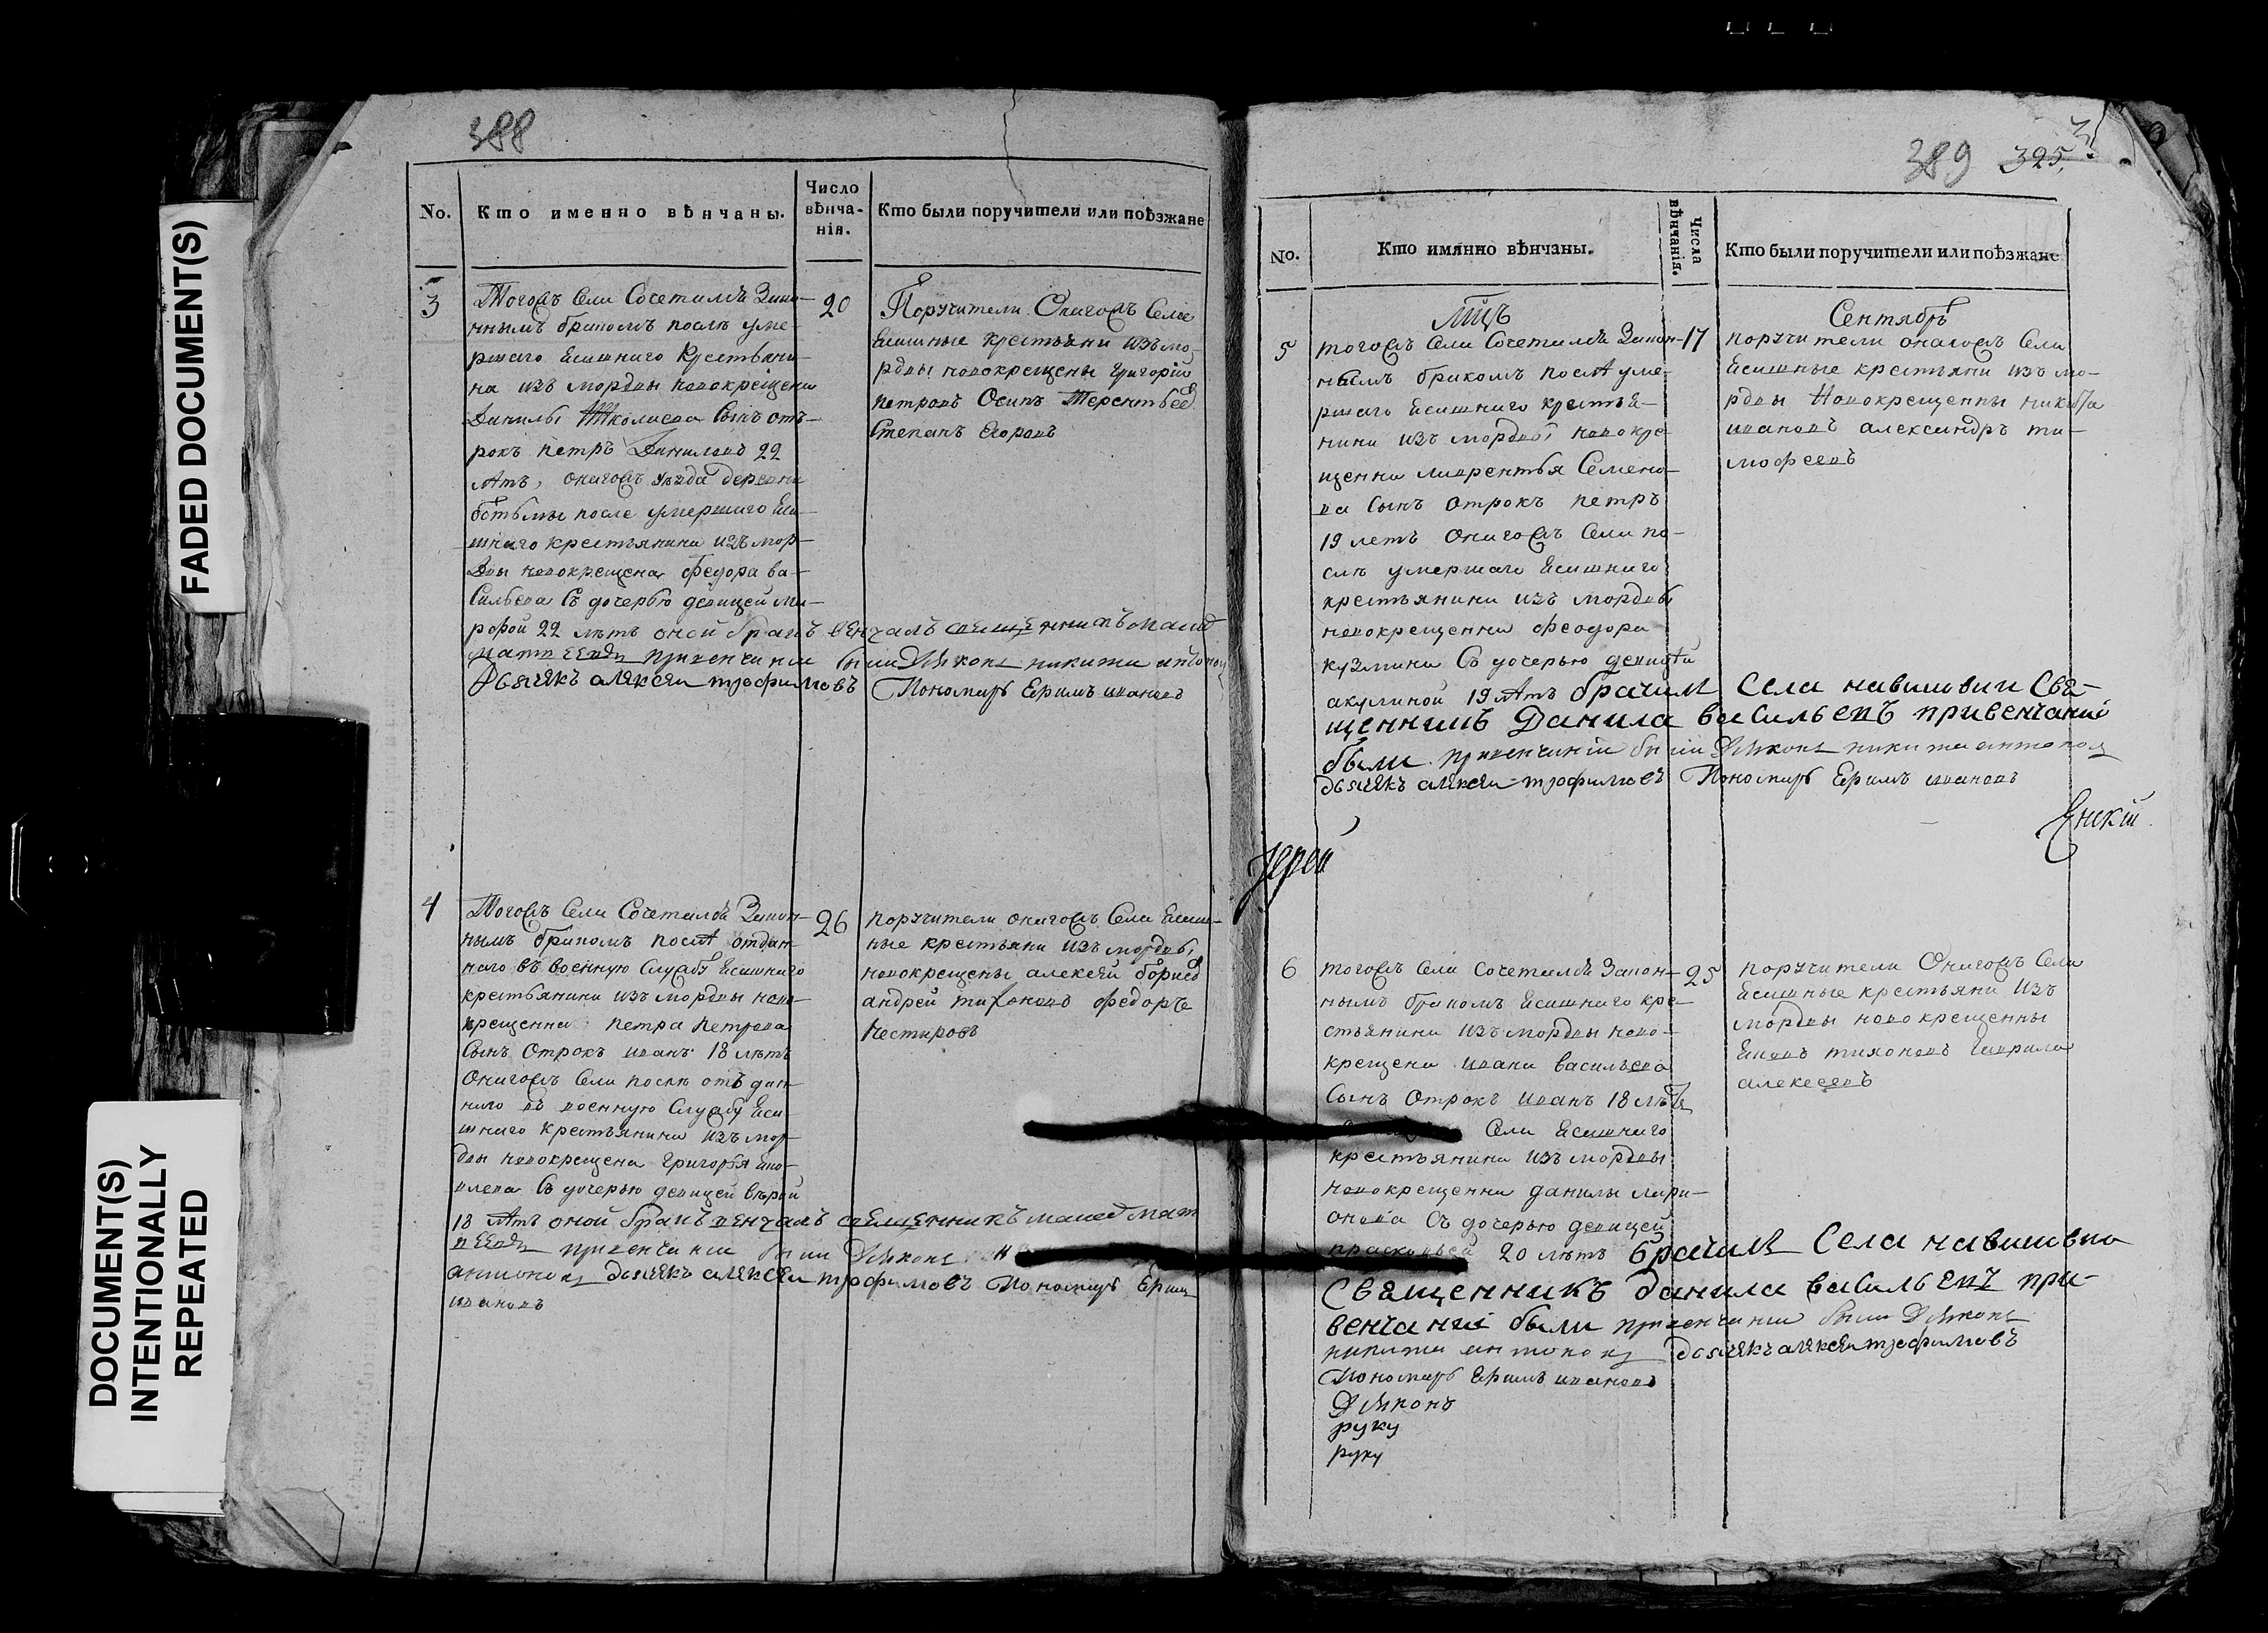 FADED DOCUMENT(S)
DOCUMENT(S)
INTENTIONALLY
REPEATED
388
No.
Кто именно вѣнчаны.
Число
вѣнча-
нія.
Кто были поручители или поѣзжане
3
Тогожъ Села Сочетался Закон-
нымъ бракомъ послѣ уме-
ршаго Ясашнаго Крестьяни-
на изъ мордвы новокрещена
Данилы Сынъ отъ-
рокъ петръ Даниловъ 22
лѣтъ, онагожъ уѣзда деревни
после умершаго Яса-
шнаго крестьянина изъ мор-
двы новокрещена федора ва-
сильева Съ дочерью девицей ма-
рфой 22 лѣтъ оной бракъ венчалъ священникъ
матвеевъ привенчании были Дьяконъ никита антоновъ
Дьячекъ алексеи трофимовъ Пономарь Ефимъ ивановъ
20
Поручители Онагожъ Села
Ясашные крестьяни изъ мо-
рдвы новокрещены григорій
петровъ Осипъ Терентьев
Степанъ Егоровъ
4
Тогожъ Села Сочетался Закон-
нымъ бракомъ послѣ отдан-
наго въ военную Службу Ясашнаго
крестьянина изъ мордвы ново-
крещенна петра петрова
Сынъ Отрокъ иванъ 18 лѣтъ
Онагожъ Села послѣ отъ дан-
наго въ военную Службу Яса-
шнаго крестьянина изъ мор-
двы новокрещена Григорья яко-
влева Съ дочерью девицей вѣрой
18 лѣтъ оной бракъ венчалъ священникъ мат
веевъ привенчании были Дьяконъ
антоновъ дьячекъ алексеи трофимовъ Пономарь Ефим
ивановъ
26
поручители онагожъ Села Ясаш-
ные крестьяни изъ мордвы
новокрещены алексѣй борисов
андрей тихоновъ федоръ
нестеровъ
389
325.
No.
Кто имянно вѣнчаны.
Числа
вѣнчанія.
Кто были поручители или поѣзжане
Мцъ
Сентябрь
5
тогожъ Села Сочетался Закон-
нымъ бракомъ послѣ уме-
ршаго Ясашнаго крестья-
нина изъ мордвы новокре-
щенна лаврентья Семено-
ва Сынъ Отрокъ петръ
19 летъ Онагожъ Села по-
слѣ умершаго Ясашнаго
крестьянина изъ мордвы
новокрещенна феодора
кузмина Съ дочерью девицей
акулиной 19 лѣтъ брачилъ Села навашовки Свя-
щенникъ Данила васильевъ привенчаніи
были привенчаніи были Дьяконъ никита антоновъ
дьячекъ алексеи трофимовъ Пономарь Ефимъ ивановъ
17
поручители онагожъ Села
Ясашные крестьяни изъ мо-
рдвы Новокрещенны никита
ивановъ александръ ти-
мофеевъ
Іерей
6
тогожъ Села сочетался Закон-
нымъ бракомъ Ясашнаго кре-
стьянина изъ мордвы ново-
крещена ивана васильева
Сынъ Отрокъ иванъ 18 лѣтъ
Села Ясашнаго
крестьянина изъ мордвы
новокрещенна данилы лари-
онова Съ дочерью девицей
прасковьей 20 лѣтъ брачилъ Села навашовки
Священникъ данила васильевъ при-
венчаніи были привенчании были Дьяконъ
никита антоновъ дьячекъ алексеи трофимовъ
Пономарь Ефимъ ивановъ
Дьяконъ
руку
руку
25
поручители Онагожъ Села
Ясашные крестьяни изъ
мордвы новокрещенны
тихоновъ гаврила
алексеевъ